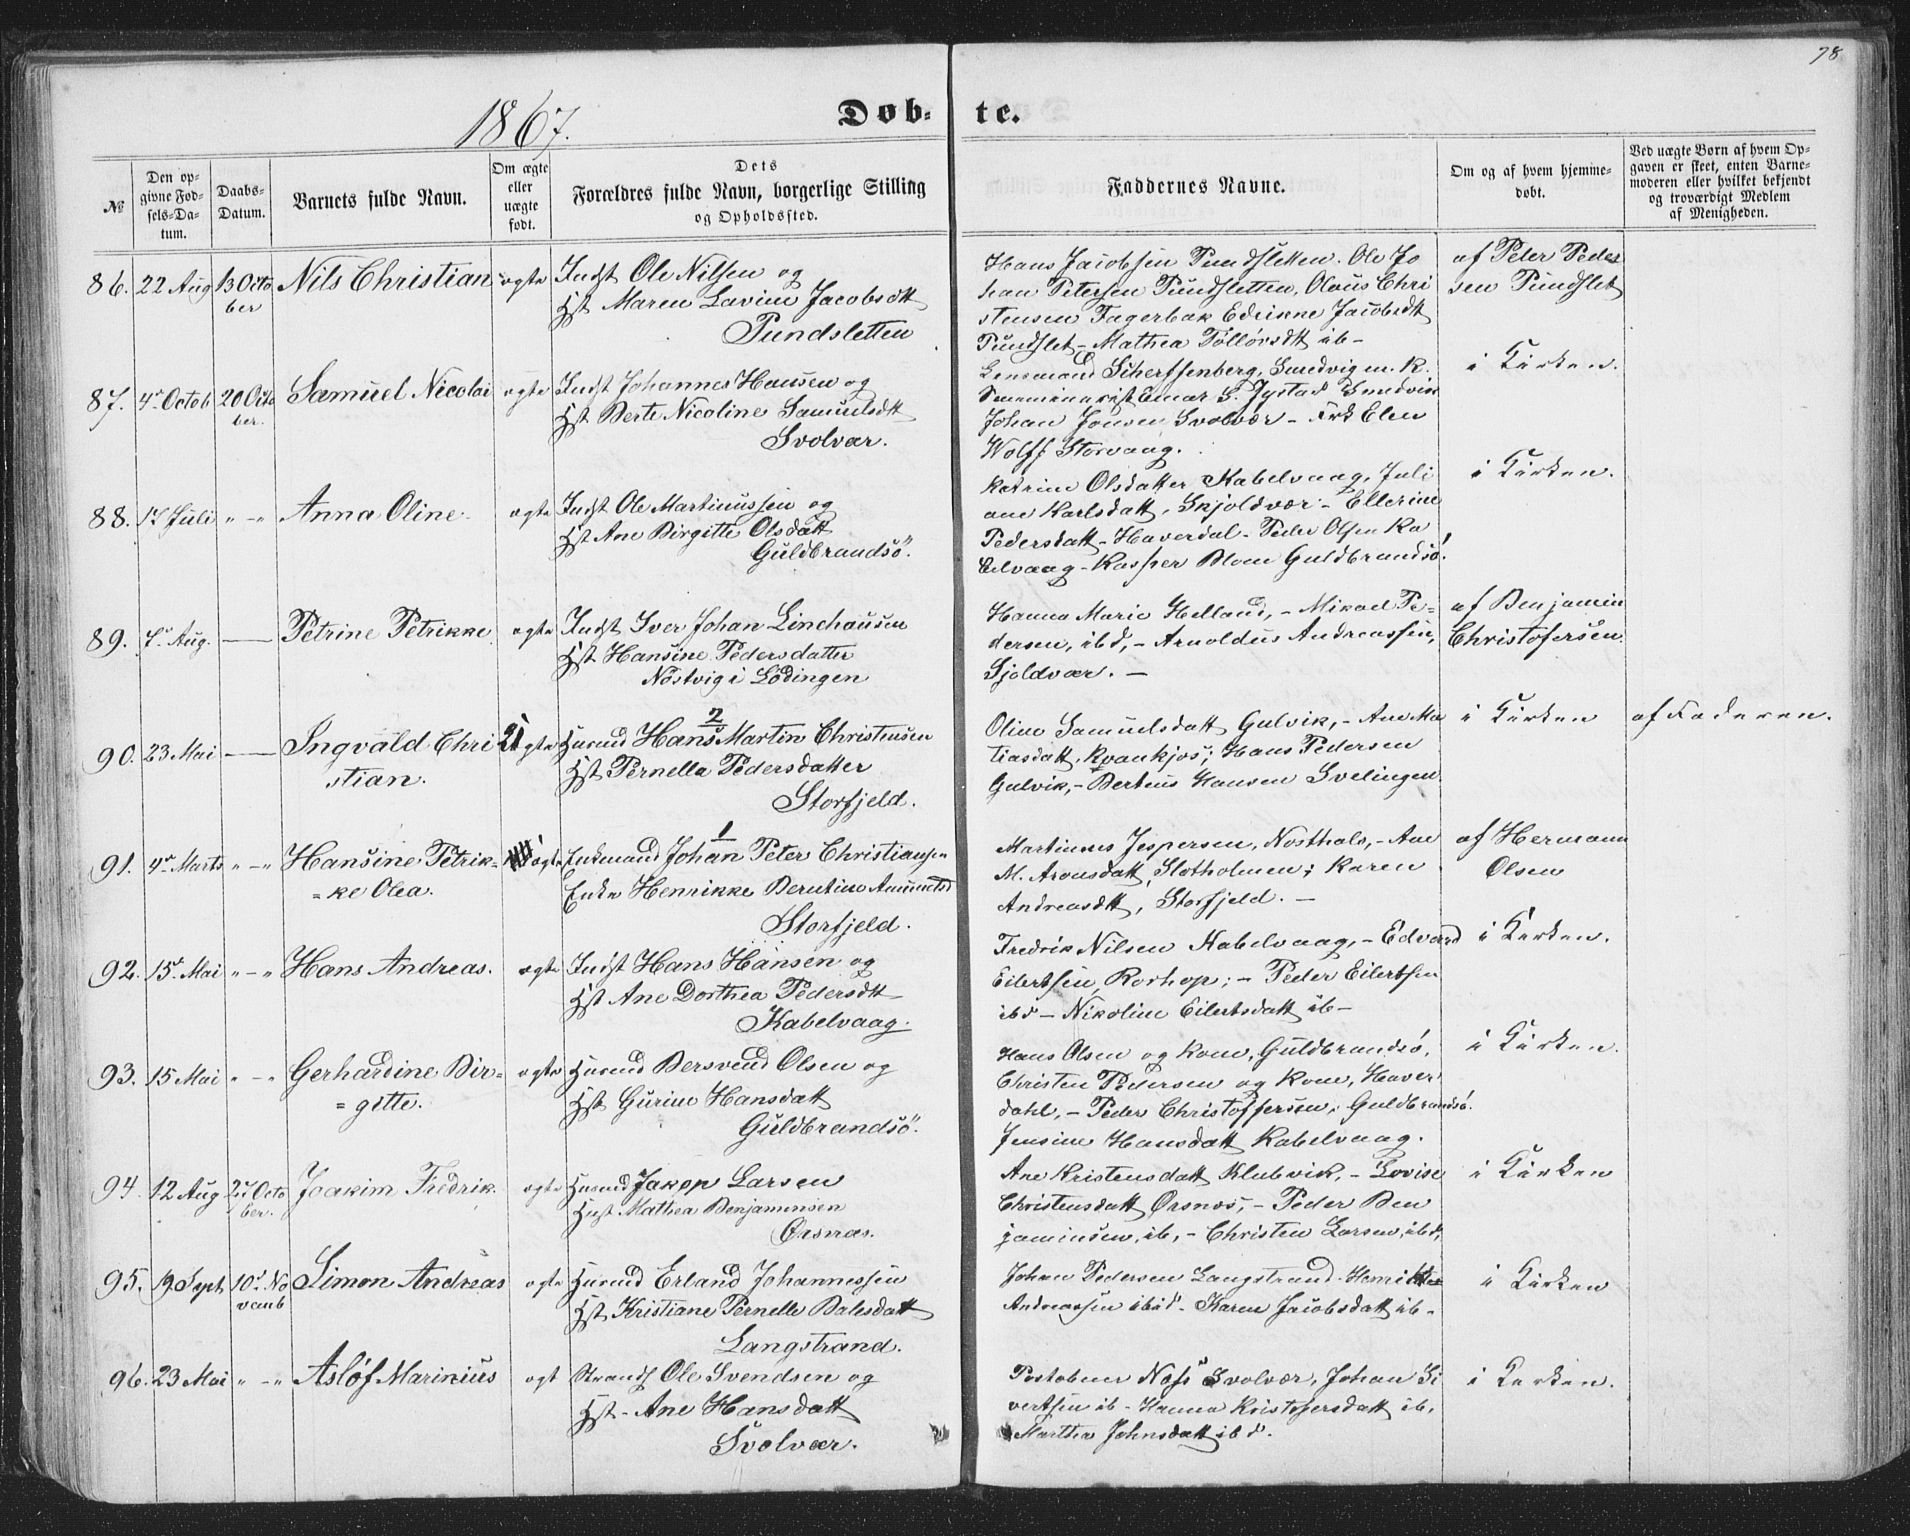 78
1867.
Døb-
te.
№
Den op-
givne Fød-
sels-Da-
tum.
Daabs-
Datum.
Barnets fulde Navn.
Om ægte
eller
uægte
født.
Dets
Forældres fulde Navn, borgerlige Stilling
og Opholdssted.
Faddernes Navne.
Om og af hvem hjemme-
døbt.
Ved uægte Børn af hvem Op-
gaven er skeet, enten Barne-
moderen eller hvilket bekjendt
og troværdigt Medlem
af Menigheden.
86. 22 Aug 13 Octo
ber
Nils Christian
ægte
Indst Ole Nilsen og
Hst Maren Lavine Jacobsdtt
Pundsletten
Hans Jacobsen Pundsletten. Ole Jo
han Petersen Pundsletten, Olaus Chri
stensen Fagerbak Edrikke Jacobsdtt
Pundslet - Mathea Tollorsdtt ib -
af Peter Peder
sen Pundslet
87. 4de Octob 20 Octo
ber.
Samuel Nicolai
ægte
Indst Johannes Hansen og
Hst Berte Nicoline Samuelsdtt
Svolvær.
Lensmand Scherffenberg, Sundvig m. K.
Johan Jonsen Svolvær - Frk Elen
Wolff Storvaag.
i Kirken.
88. 17 Juli " - "
Anna Oline
ægte
Indst Ole Martinussen og
Hst Ane Birgitte Olsdatt
Guldbrandsö.
Katrine Olsdatter Kabelvaag, Juli
ane Karlsdatt, Skjoldvær - Ellerine
Pedersdatt - Haverdal - Peder Olsen Ka
belvaag - Kasper Blom Guldbrandsö.
i Kirken.
89. 7de Aug. —
Petrine Petrikke
ægte
Indst Iver Johan Linehausen
Hst Hansine Pedersdatter
Nöstvig i Lödingen
Hanna Marie Helland, - Mikael Pe-
dersen, ibd, - Arnoldus Andreassen,
Sjoldvær. -
af Benjamin
Christofersen
90. 23 Mai —
Ingvald Chri
stian.
ægte
2
Husmd Hans Martin Christensen
Hst Pernella Pedersdatter
Storfjeld.
Oline Samuelsdatt Gulvik, - Ane Ma
tiasdatt, Kvankjos; Hans Pedersen
Gulvik, - Berteus Hansen Svelingen
i Kirken
af Faderen.
91. 4de Marts " - "
Hansine Petrik-
ke Olea.
ægte
1
Enkemand Johan Peter Christiansen
Enke Henrikke Berntine
Storfjeld.
Martinus Jespersen, Nosthals, - Ane
M. Aronsdatt, Slotholmen; Karen
Andreasdtt, Storfjeld. -
af Hermann
Olsen
92. 15de Mai " - "
Hans Andreas.
ægte
Indst Hans Hansen og
Hst Ane Dorthea Pedersdtt
Kabelvaag.
Fredrik Nilsen Kabelvaag, - Edvard
Eilertsen, Rorhop; - Peder Eilertsen
ibd - Nikoline Eilertsdatt ib -
i Kirken.
93. 15 Mai " - "
Gerhardine Bir-
gitte.
ægte
Husmd Bersvend Olsen og
Hst Gurine Hansdatt
Guldbrandsö.
Hans Olsen og Kone, Guldbrandsö,
Christen Pedersen og Kone, Haver
dahl, - Peder Christoffersen, Guldbrandsö.
Jensine Hansdatt Kabelvaag.
i Kirken.
94. 12 Aug 27 Octo
ber.
Joakim Fredrik.
ægte
Husmd Jakop Larsen
Hust Mathea Benjaminsen
Orsnas.
Ane Kristensdatt Klubvik, - Lovise
Christensdatt Ørsnes, - Peder Ben
jaminsen, ib, - Christen Larsen, ibd,
i Kirken
95. 19 Sept 10de No
vemb
Simon Andreas
ægte
Husmd Erland Johannessen
Hst Kristiane Pernelle Balesdatt
Langstrand.
Johan Pedersen Langstrand. Henrik
Andreassen ibid - Karen Jacobsdatt ib -
i Kirken
96. 23 Mai " - "
Asløf Marinius
ægt
Strands Ole Svendsen og
Hst - Ane Hansdatt
Svolvær.
Postobner Næss Svolvær, Johan Si
vertsen ib - Hanna Kristofersdatt ib,
Marthea Johnsdatt ibd.
i Kirken.